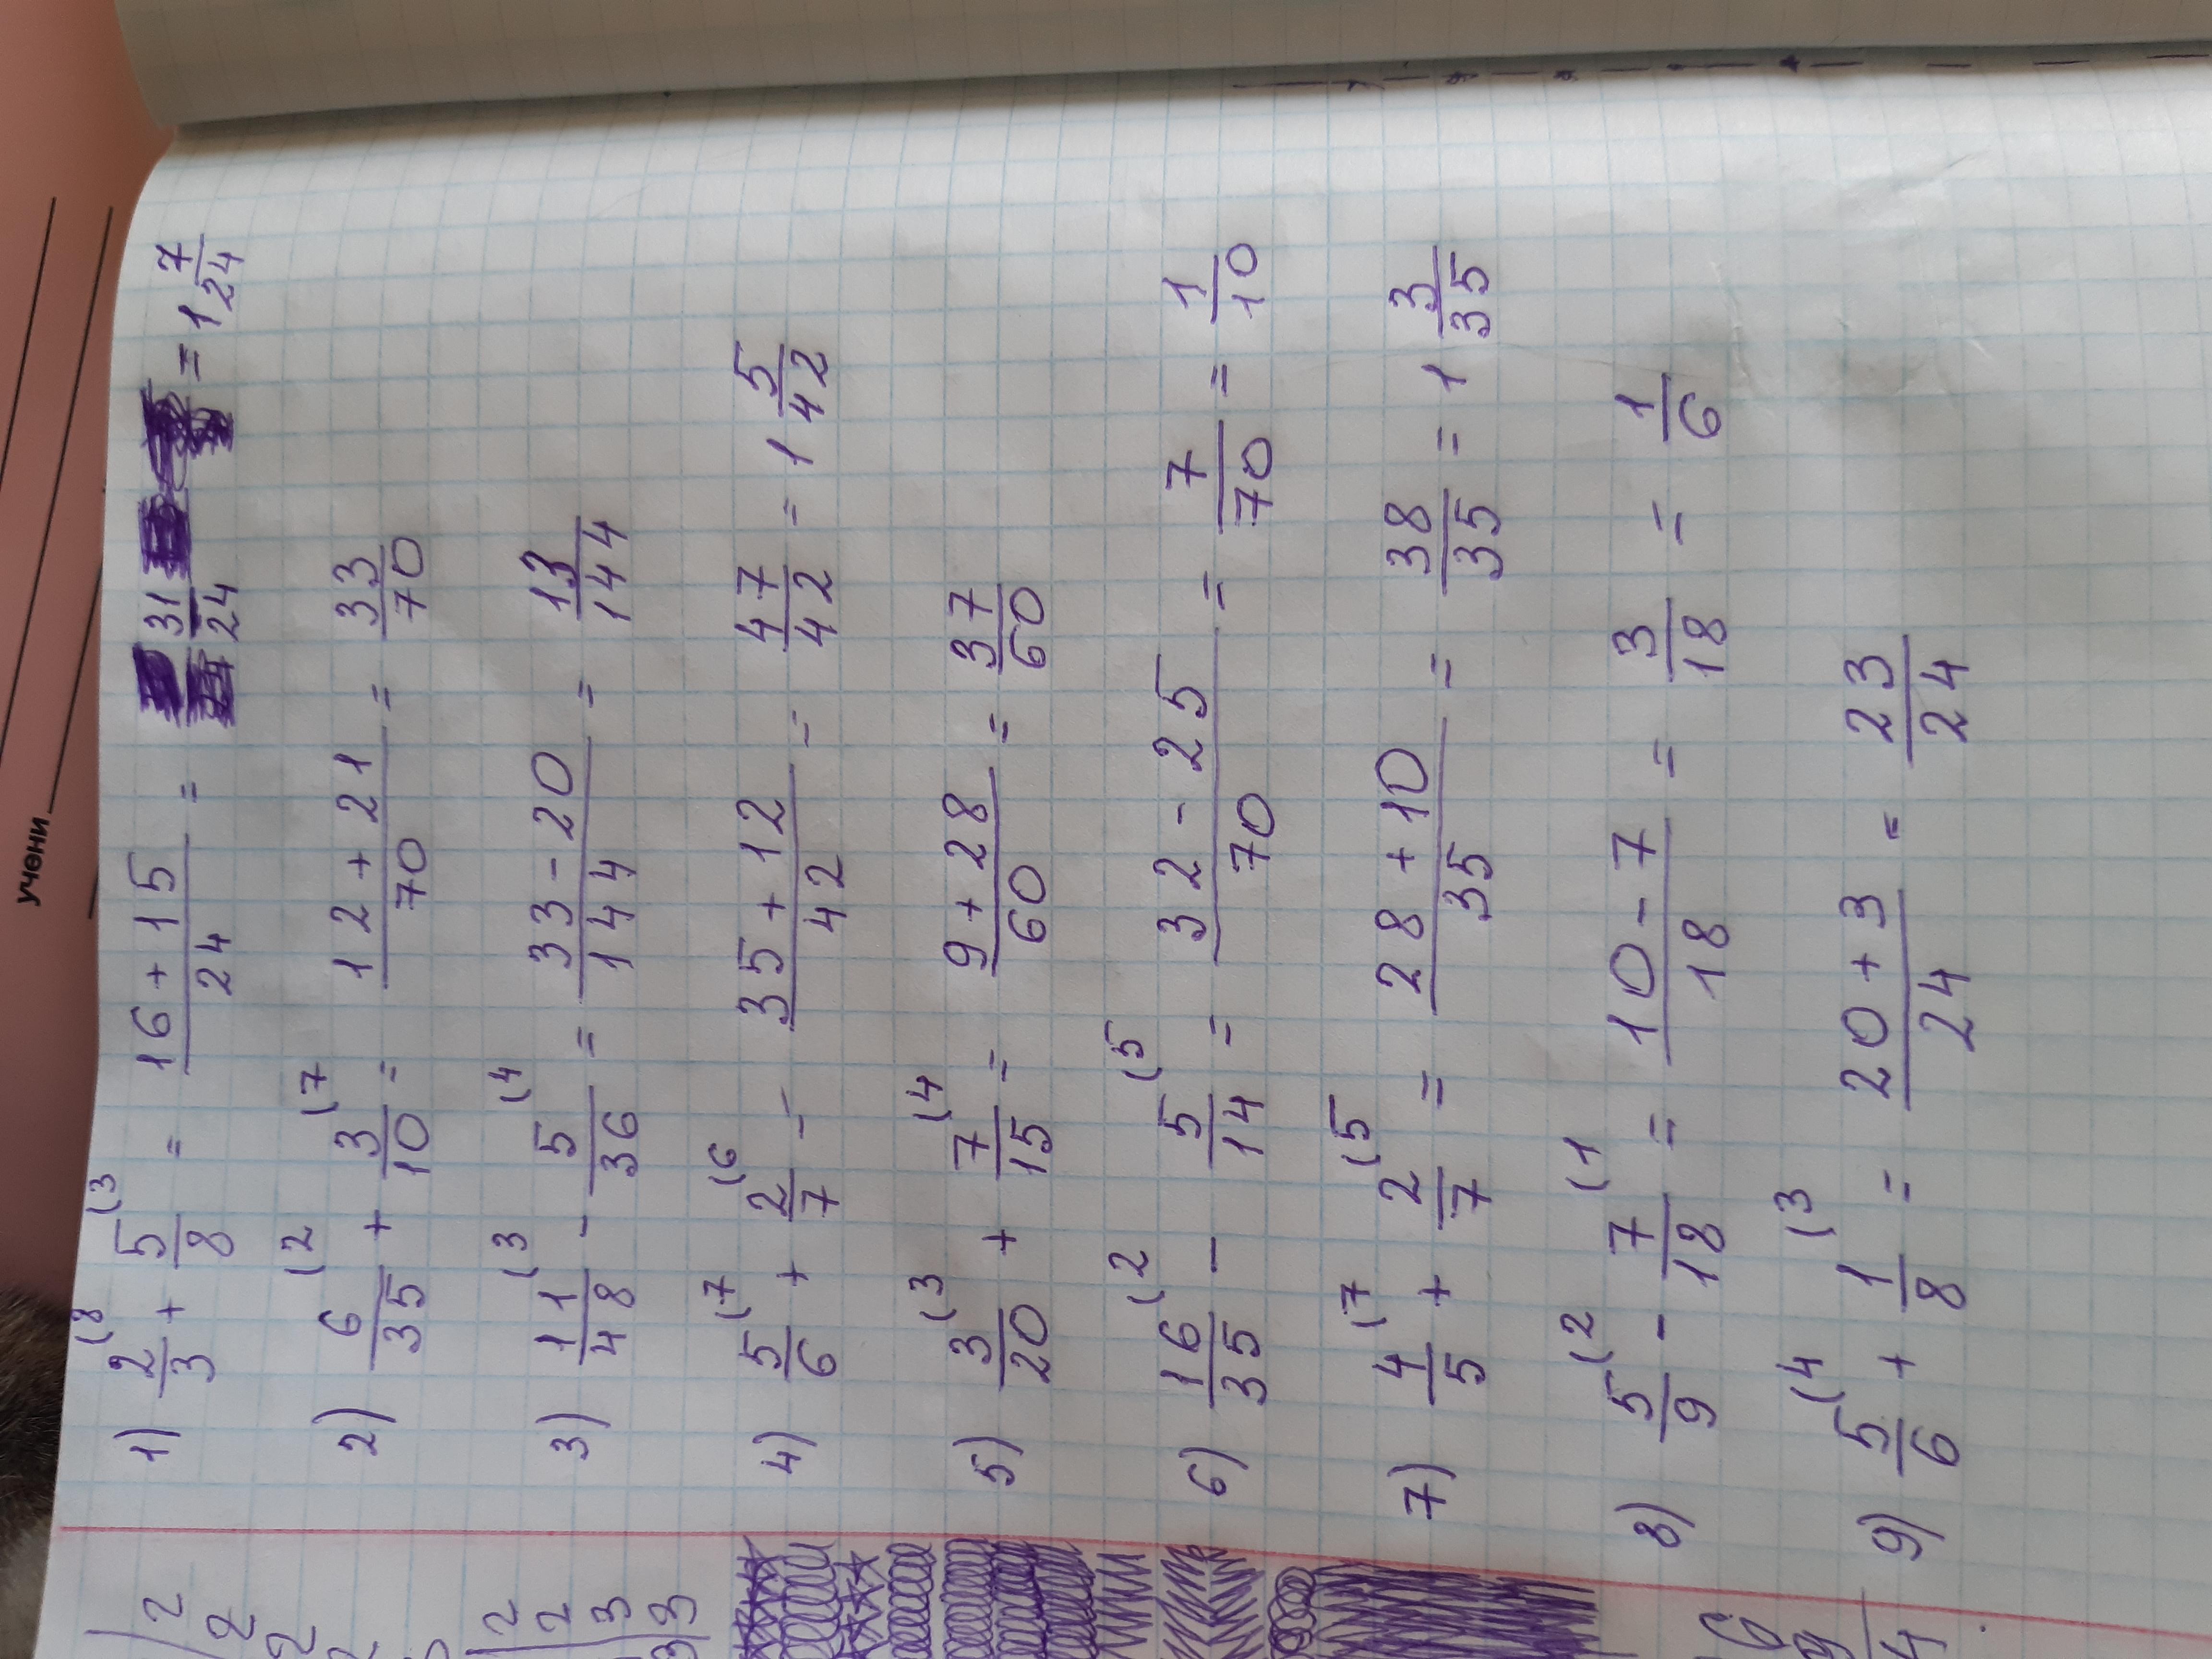 учени
1) 2/3 (8 + 5/8 (3 = (16 + 15)/24 = 31/24 = 1 7/24
2) 6/35 (2 + 3/10 (7 = (12 + 21)/70 = 33/70
3) 11/48 (3 - 5/36 (4 = (33 - 20)/144 = 13/144
4) 5/6 (7 + 2/7 (6 = (35 + 12)/42 = 47/42 = 1 5/42
5) 3/20 (3 + 7/15 (4 = (9 + 28)/60 = 37/60
6) 16/35 (2 - 5/14 (5 = (32 - 25)/70 = 7/70 = 1/10
7) 4/5 (7 + 2/7 (5 = (28 + 10)/35 = 38/35 = 1 3/35
8) 5/9 (2 - 7/18 (1 = (10 - 7)/18 = 3/18 = 1/6
9) 5/6 (4 + 1/8 (3 = (20 + 3)/24 = 23/24